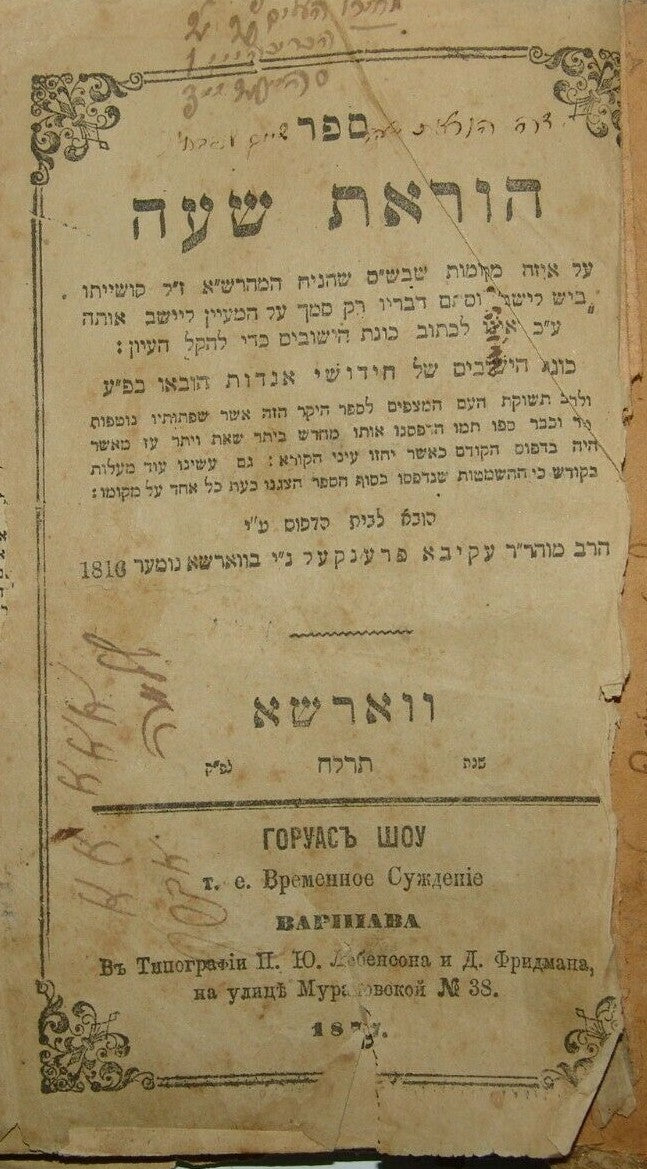 ספר
הוראת שעה
על איזה מקומות שבש״ס שהניח המהרש״א ז״ל קושייתו
ביש לישב וסתם דבריו רק סמך על המעיין ליישב אותה
ע״כ לכתוב כונת הישובים כדי להקל העיון :
כונת הישובים של חידושי אגדות הובאו בפ״ע
ולרב תשוקת העם המצפים לספר היקר הזה אשר שפתותיו נוטפות
וכבר ספו תמו הדפסנו אותו מחדש ביתר שאת ויתר עז מאשר
היה בדפוס הקודם כאשר יחזו עיני הקורא : גם עשינו עוד מעלות
בקודש כי ההשמטות שנדפסו בסוף הספר הצגנו כעת כל אחד על מקומו :
הובא לבית הדפוס ע״י
הרב מוהר״ר עקיבא פרענקעל נ״י בווארשא נומער 1816
ווארשא
שנת תרלח לפ״ק
ГОРУАСЪ ШОУ
т. е. Временное Сужденіе
ВАРШАВА
Въ Типографіи П. Ю. Лебенсона и Д. Фридмана,
на улицѣ Мурановской № 38.